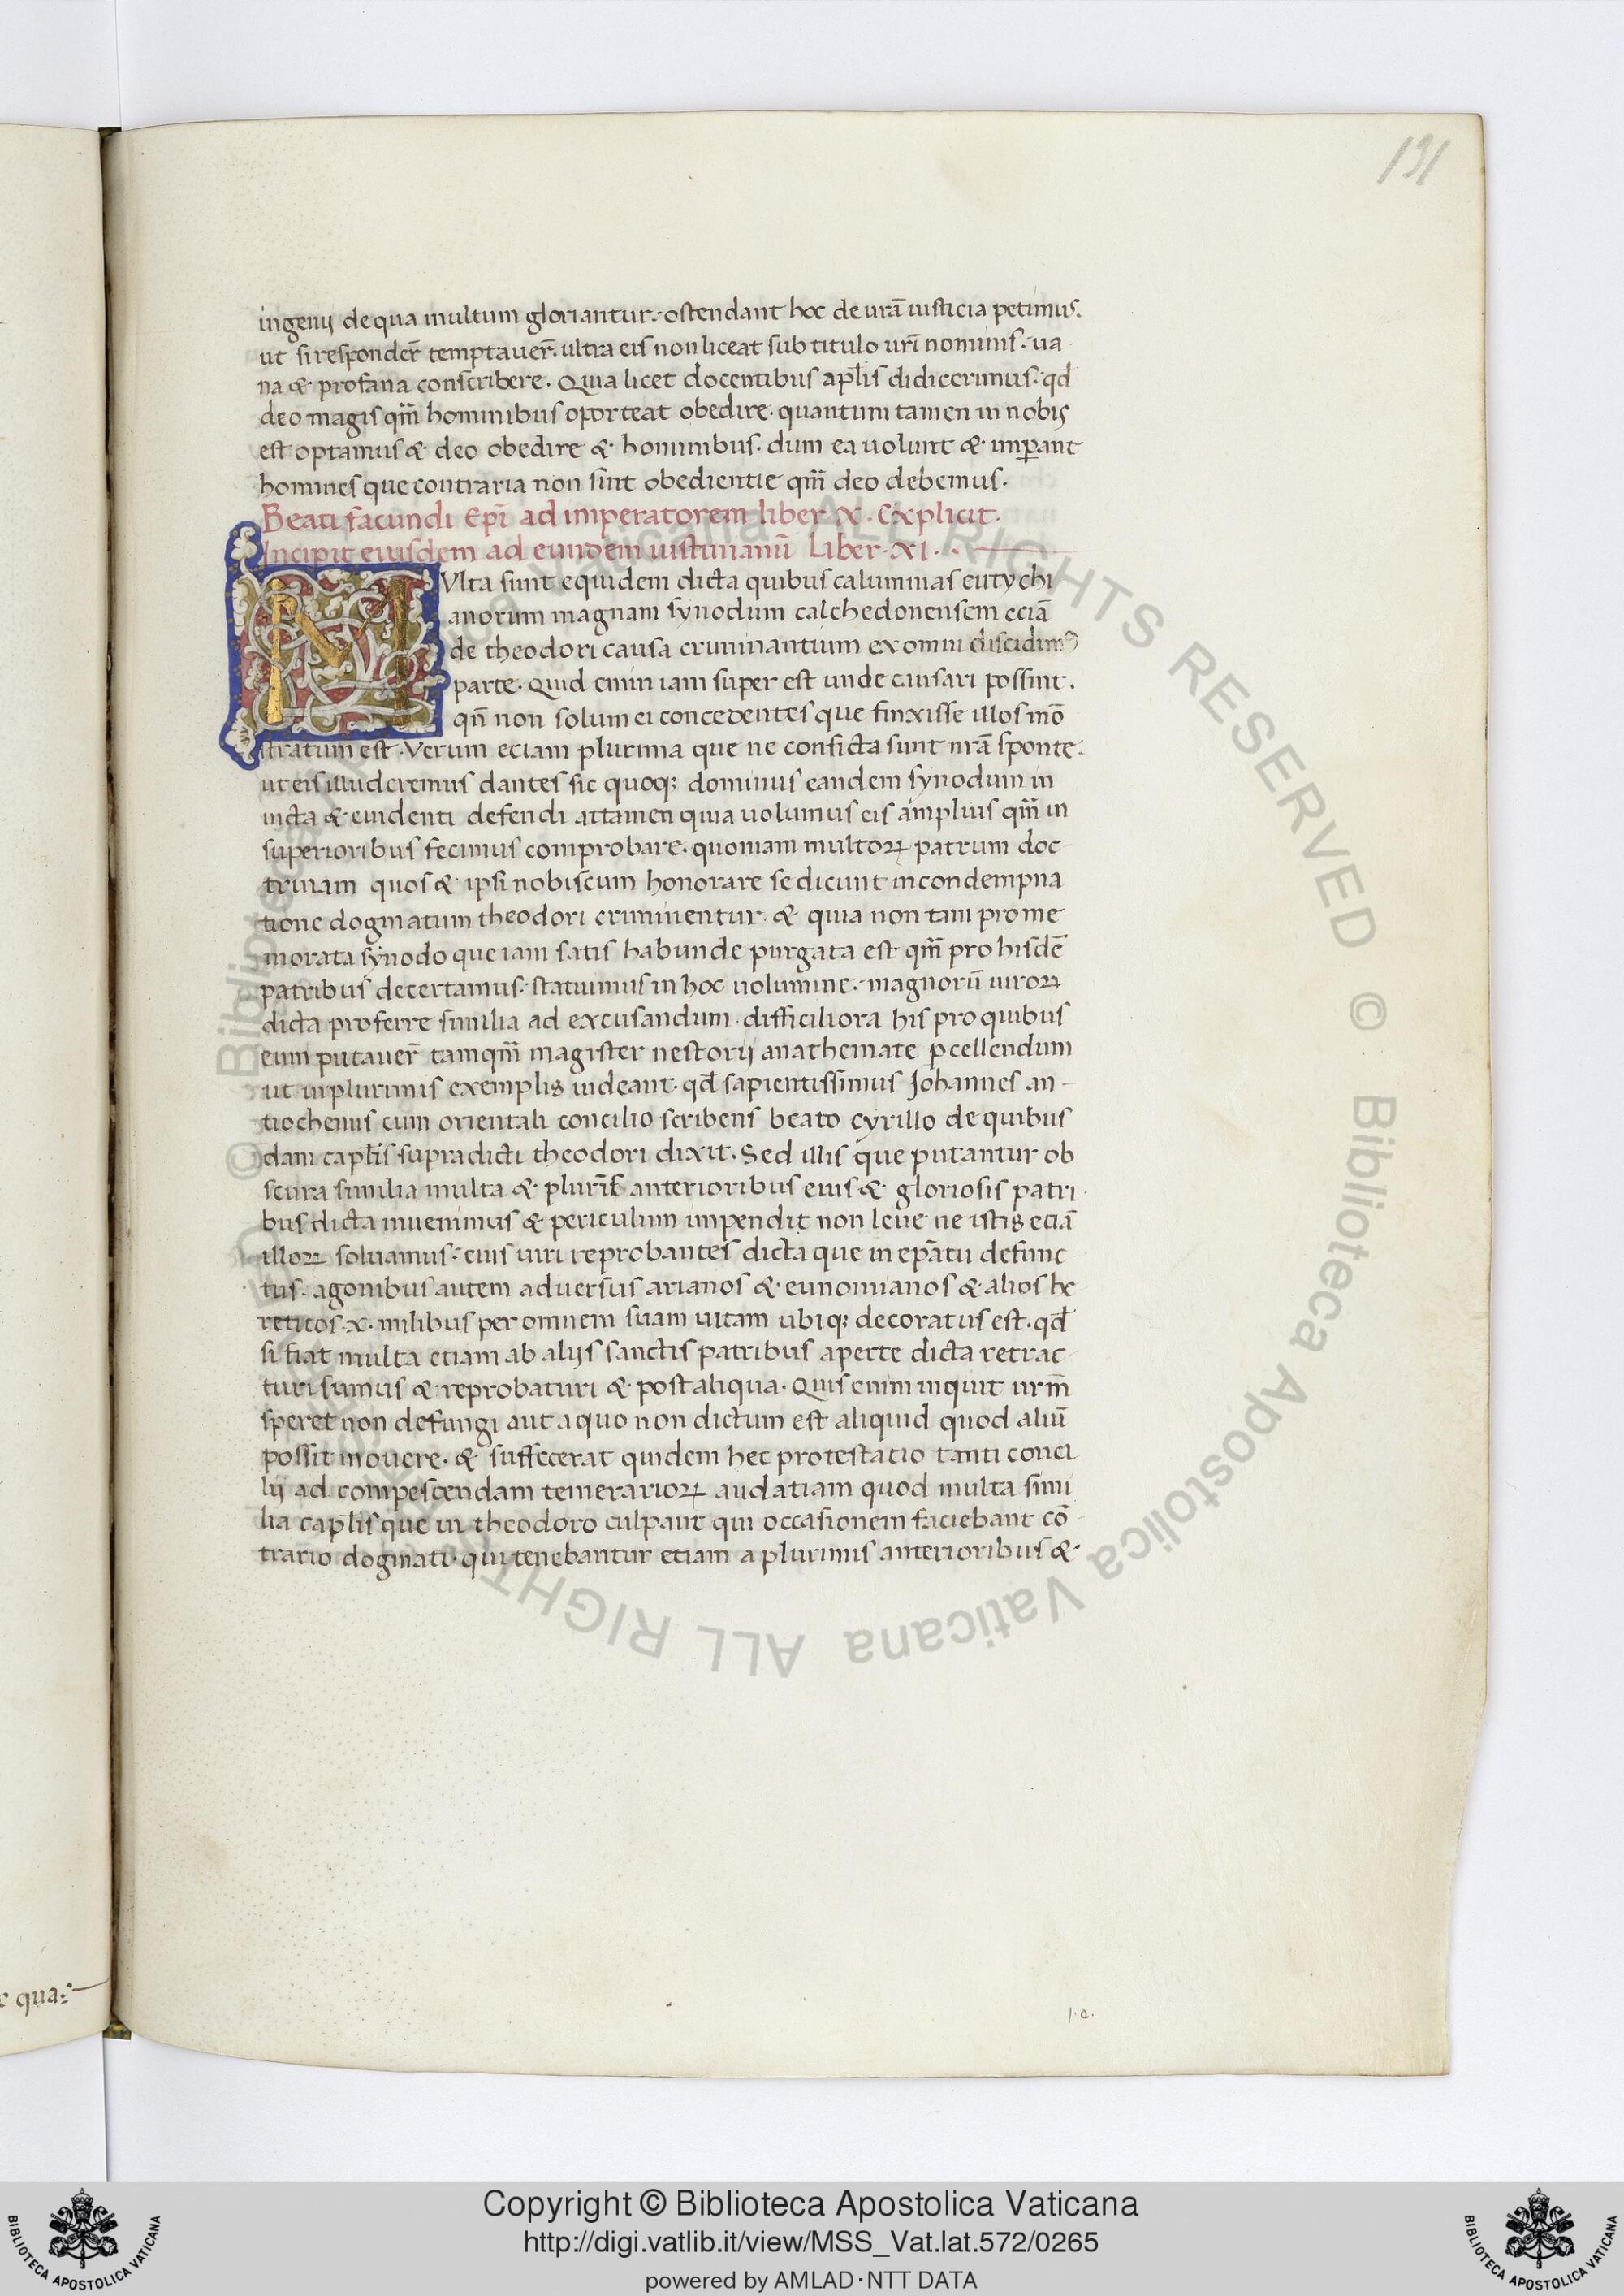 131
ingenij de qua multum gloriantur. ostendant hoc de urā iusticia petimus.
ut si responder̄ temptauer̄. ultra eis non liceat sub titulo urī nominis. ua
na & profana conscribere. Quia licet docentibus apl̄is didicerimus. qd̄
deo magis qm̄ hominibus oporteat obedire. quantum tamen in nobis
est optamus & deo obedire & hominibus. dum ea uolunt & imꝑant
homines que contraria non sint obedientie qm̄ deo debemus.
Beati facundi Epī ad imperatorem liber X. Explicit.
Incipit eiusdem ad eundem iustinianū Liber XI.
MUlta sunt equidem dicta quibus calumnias eutychi
anorum magnam synodum calchedonensem eciā
de theodori causa criminantium ex omni discidimꝰ
parte. Quid enim iam super est unde causari possint.
qn̄ non solum ei concedentes que finxisse illos mō
stratum est. Verum eciam plurima que ne conficta sunt nrā sponte.
ut eis illuderemus dantes sic quoq; dominus eandem synodum in
uicta & euidenti defendi attamen quia uolumus eis amplius qm̄ in
superioribus fecimus comprobare. quoniam multoꝝ patrum doc
trinam quos & ipsi nobiscum honorare se dicunt in condempna
tione dogmatum theodori criminentur. & quia non tam pro me
morata synodo que iam satis habunde purgata est qm̄ pro hisdē
patribus decertamus. statuimus in hoc uolumine. magnorū uiroꝝ
dicta proferre similia ad excusandum difficiliora his pro quibus
eum putauer̄ tamqm̄ magister nestorij anathemate ꝑcellendum
ut in plurimis exemplis uideant. qd̄ sapientissimus Johannes an-
tiochenus cum orientali concilio scribens beato cyrillo de quibus
dam capl̄is supradicti theodori dixit. Sed illis que putantur ob
scura similia multa & plurī anterioribus eius & gloriosis patri
bus dicta inuenimus & periculum impendit non leue ne istis eciā
illoꝝ soluamus. eius uiri reprobantes dicta que in epātu defunc
tus. agonibus autem aduersus arianos & eunomianos & alios he
reticos .x. milibus per omnem suam uitam ubiq; decoratus est. qd̄
si fiat multa etiam ab alijs sanctis patribus aperte dicta retrac
turi sumus & reprobaturi & post aliqua. Quis enim inquit urm̄
speret non defungi aut a quo non dictum est aliquid quod aliū
possit mouere. & suffecerat quidem hec protestacio tanti conci
lij ad compescendam temerarioꝝ audatiam quod multa simi
lia capl̄is que in theodoro culpant qui occasionem faciebant cō
trario dogmati. qui tenebantur etiam a plurimis anterioribus &
qua:
Copyright © Biblioteca Apostolica Vaticana
http://digi.vatlib.it/view/MSS_Vat.lat.572/0265
powered by AMLAD·NTT DATA
BIBLIOTECA APOSTOLICA VATICANA
BIBLIOTECA APOSTOLICA VATICANA